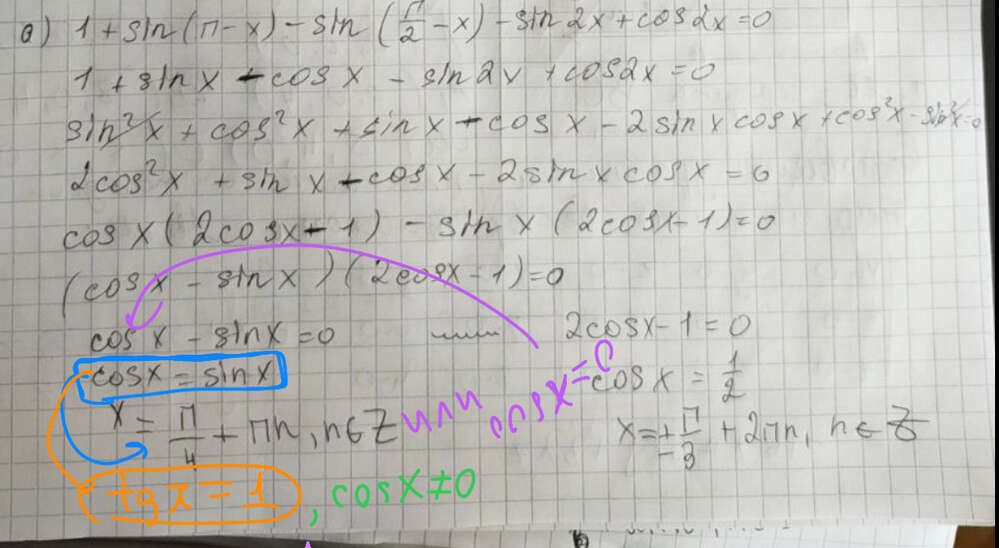 а) 1 + sin(π - x) - sin(π/2 - x) - sin 2x + cos 2x = 0
1 + sin x - cos x - sin 2x + cos 2x = 0
sin²x + cos²x + sin x - cos x - 2 sin x cos x + cos²x - sin²x = 0
2cos²x + sin x - cos x - 2 sin x cos x = 0
cos x (2cosx - 1) - sin x (2cosx - 1) = 0
(cos x - sin x) (2cosx - 1) = 0
cos x - sin x = 0 2cosx - 1 = 0
cosx = sin x cos x = 1/2
x = π/4 + πn, n ∈ Z или cosx = 0 x = ± π/3 + 2πn, n ∈ Z
tg x = 1, cosx ≠ 0